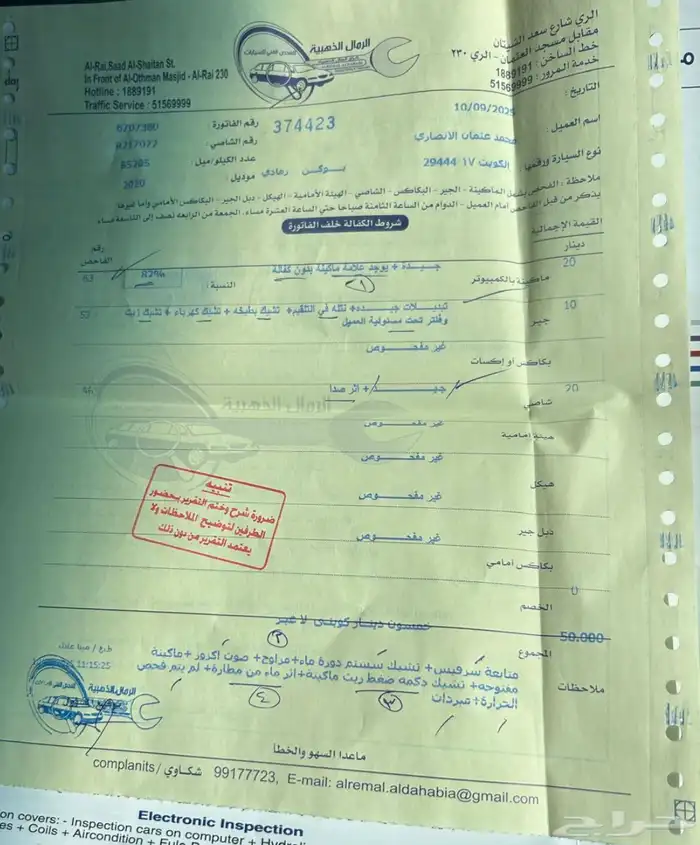 الري شارع سعد الشيتان
مقابل مسجد العثمان - الري ٢٣٠
خط الساخن: 1889191
خدمة المرور: 51569999
الرمال الذهبية
للفحص الفني للسيارات
Al-Rai,Saad Al-Shaitan St.
In Front of Al-Othman Masjid - Al-Rai 230
Hotline : 1889191
Traffic Service : 51569999
التاريخ:
10/09/2025
رقم الفاتورة
374423
6707380
اسم العميل:
محمد عثمان الانصاري
رقم الشاصي
نوع السيارة ورقمها
الكويت ١٧ 29444
عدد الكيلو/ميل
85205
موديل
2020
ملاحظة: الفحص يشمل الماكينة - الجير - البكاكس - الشاصي - الهيئة الأمامية - الهيكل - دبل الجير - البكاكس الأمامي وما غيرها
يذكر من قبل الفاحص أمام العميل - الدوام من الساعة الثامنة صباحا حتى الساعة العشرة مساء. الجمعة من الرابعة نصف إلى التاسعة مساء
شروط الكفالة خلف الفاتورة
القيمة الإجمالية
دينار
رقم الفاحص
20
ماكينة بالكمبيوتر
جيـــدة + يوجد علامة ماكينة بدون كفالة
١
النسبة:
82%
63
10
جير
تبديــلات جيــــده + نتله في التنقيم + تشيك بطيخه + تشيك كهرباء + تشيك زيت
وفلتر تحت مسئولية العميل
بكاكس أو إكسات
غير مفحــــوص
20
شاصي
جيــــد + اثر صدأ
هيئة إمامية
غير مفحــــوص
هيكل
غير مفحــــوص
دبل جير
غير مفحــــوص
بكاكس أمامي
غير مفحــــوص
تنبيه
ضرورة شرح وختم التقرير بحضور
الطرفين لتوضيح الملاحظات ولا
يعتمد التقرير من دون ذلك
0
الخصم
50.000
خمسون دينار كويتي لا غير
المجموع
11:15:25
ملاحظات
متابعة سرفيس + تشيك سستم دورة ماء + مراوح + صوت اكزوز + ماكينة
مفتوحه + تشيك دكمه ضغط زيت ماكينة + اثر ماء من مطارة + لم يتم فحص
الحرارة + مبردات
٢
٣
٤
الرمال الذهبية
ماعدا السهو والخطأ
complanits / شكاوي 99177723, E-mail: alremal.aldahabia@gmail.com
Electronic Inspection
on covers: - Inspection cars on computer +
es + Coils + Aircondition +
حراج